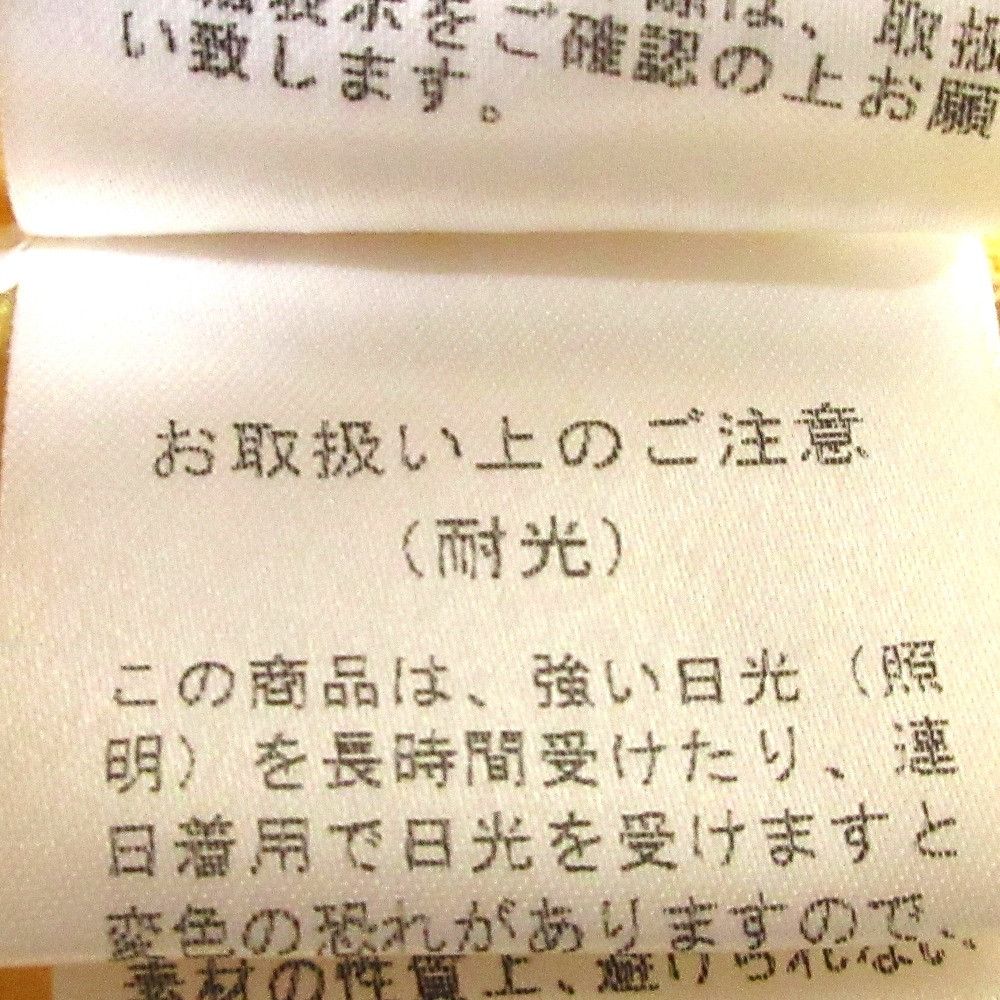 表示をご確認の上お願
い致します。
お取扱い上のご注意
（耐光）
この商品は、強い日光（照
明）を長時間受けたり、連
日着用で日光を受けますと
変色の恐れがありますので、
素材の性質上、避けられない